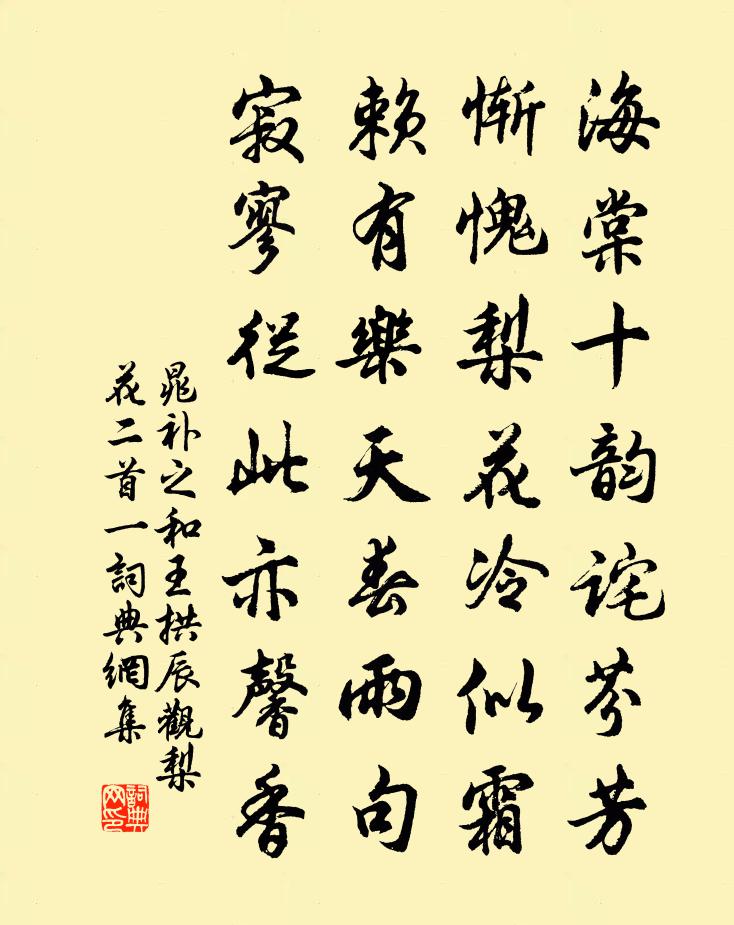 海棠十韵詫芬芳
惭愧梨花冷似霜
赖有樂天春雨句
寂寥從此亦馨香
晁补之和王拱辰觀梨
花二首一詞典網集
詞典網印